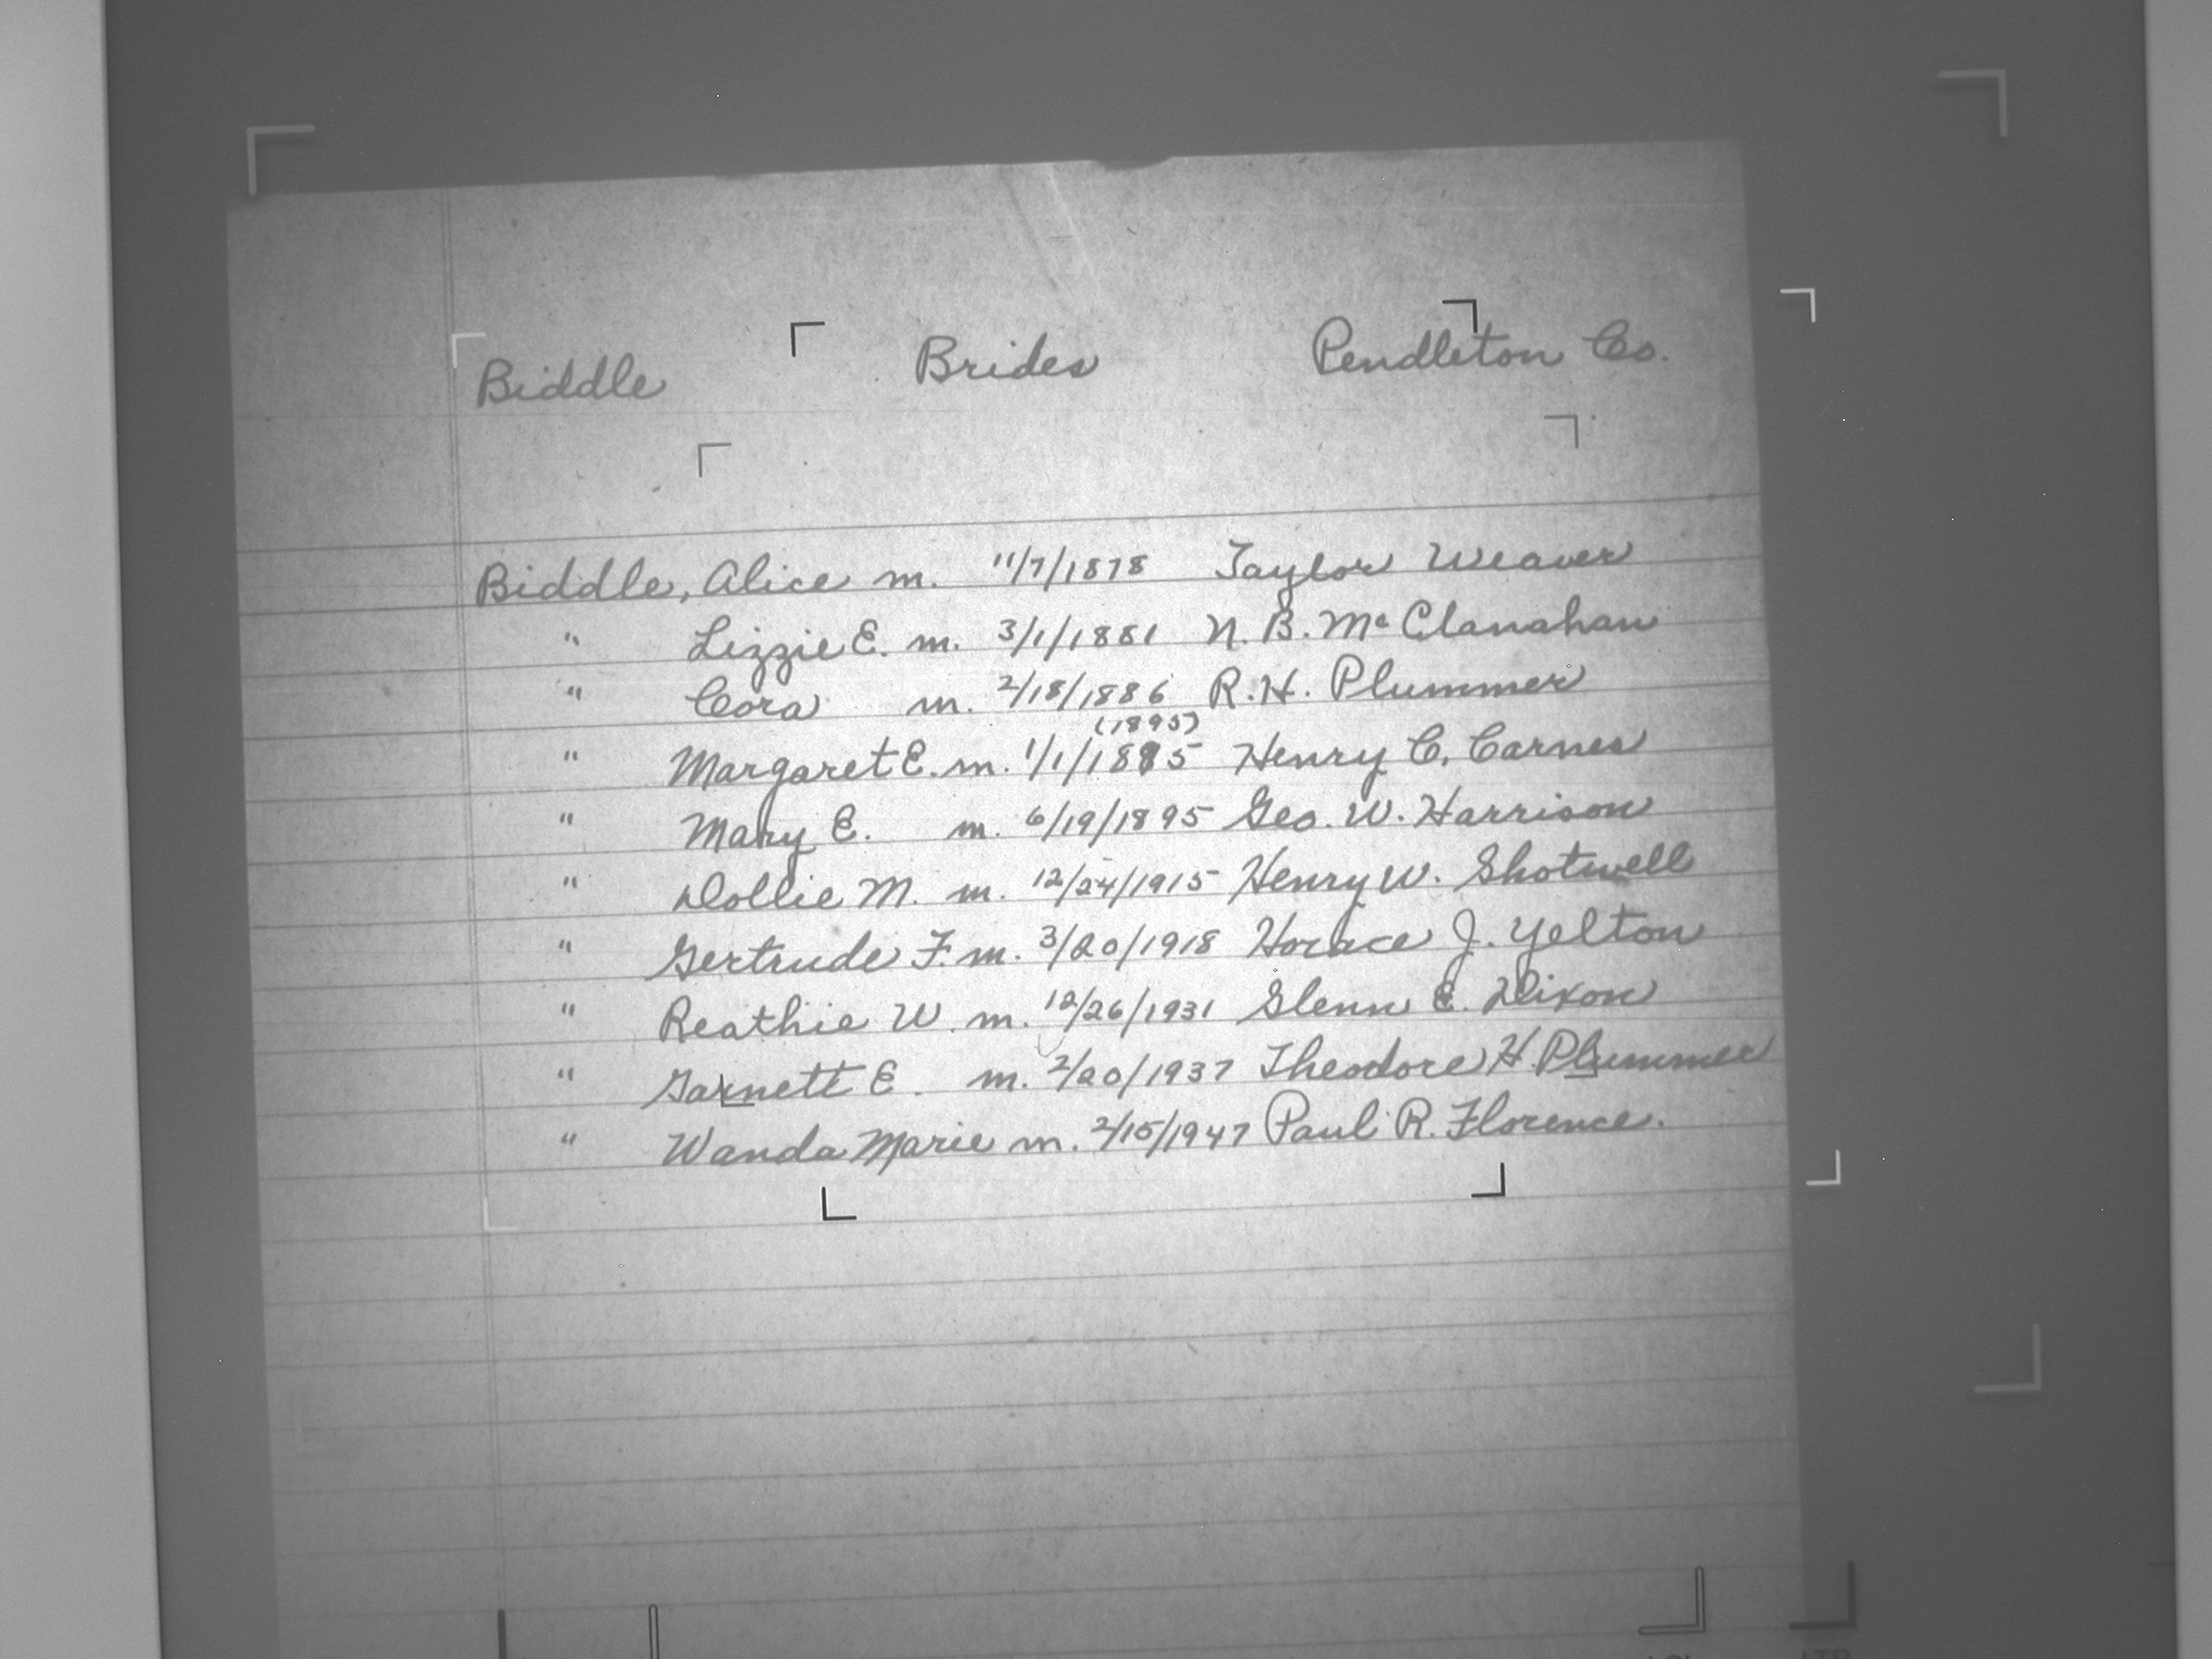 Biddle Brides Pendleton Co.
Biddle, Alice m. 11/7/1878 Taylor Weaver
" Lizzie E. m. 3/1/1881 N. B. McClanahan
" Cora m. 2/18/1886 R. H. Plummer
(1895)
" Margaret E. m. 1/1/1895 Henry C. Carnes
" Mary E. m. 6/19/1895 Geo. W. Harrison
" Dollie M. m. 12/24/1915 Henry W. Shotwell
" Gertrude F. m. 3/20/1918 Horace J. Yelton
" Reathie W. m. 12/26/1931 Glenn E. Dixon
" Garnett E. m. 2/20/1937 Theodore H. Plummer
" Wanda Marie m. 2/15/1947 Paul R. Florence.